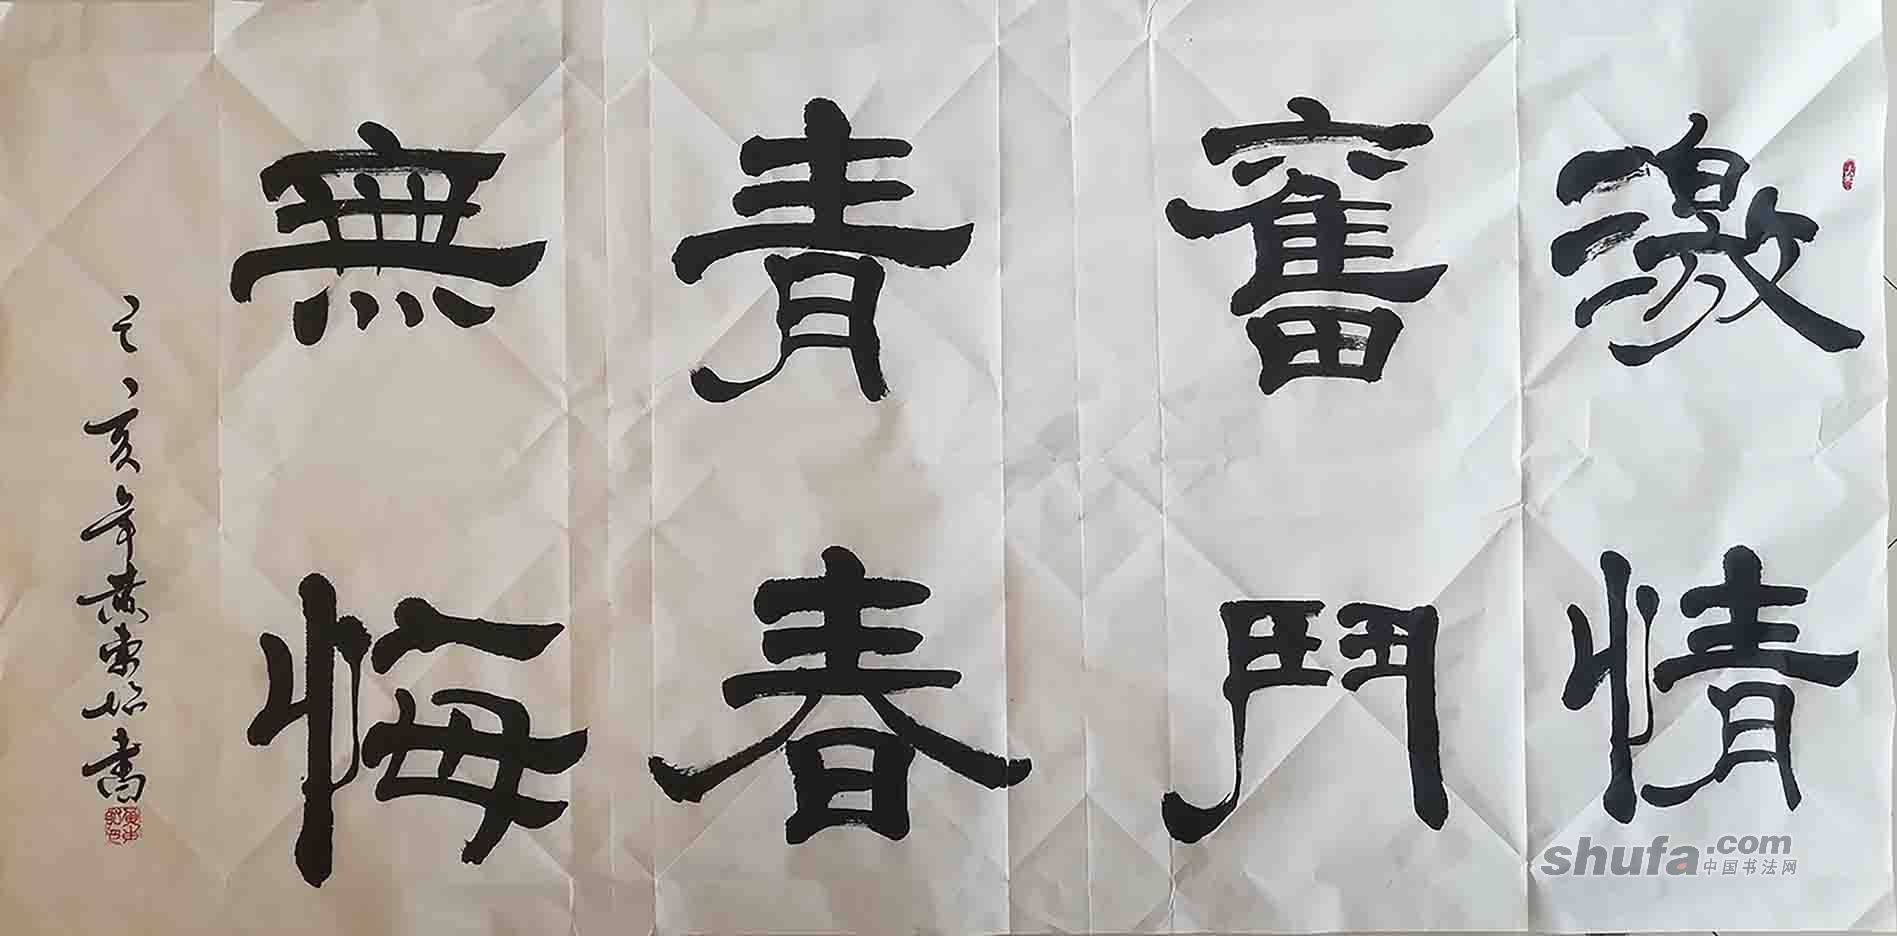 激情
奮鬥
青春
無悔
己亥年黄東昭書
shufa.com
中国书法网